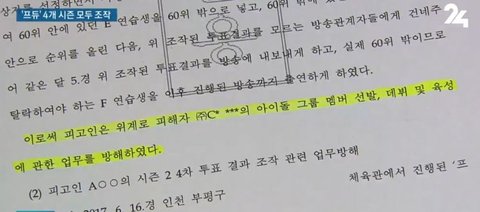 '프듀' 4개 시즌 모두 조작
24
60위 밖으로 넣고, 60위 밖에
여 60위 안에 있던 E 연습생을
안으로 순위를 올린 다음, 위 조작된 투표결과를 모르는 방송관계자들에게 건네주
어 같은 달 5.경 위 조작된 투표결과를 방송에 내보내게 하고, 실제 60위 밖이므로
탈락하여야 하는 F 연습생을 이후 진행된 방송까지 출연하게 하였다.
이로써 피고인은 위계로 피해자 ㈜C* ***의 아이돌 그룹 멤버 선발, 데뷔 및 육성
에 관한 업무를 방해하였다.
(2) 피고인 A○○의 시즌 2 4차 투표 결과 조작 관련 업무방해
2017. 6. 16.경 인천 부평구
체육관에서 진행된 '프